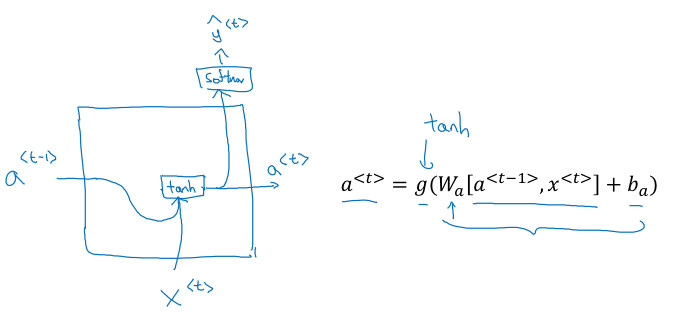 ŷ<t>
softmax
a<t-1>
tanh
a<t>
x<t>
tanh
a<t> = g(Wa[a<t-1>, x<t>] + ba)